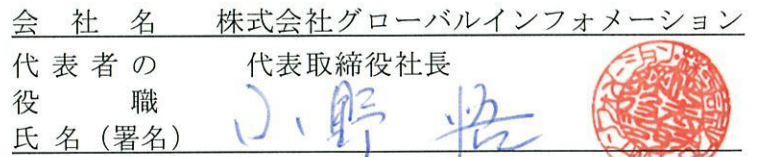 会社名 株式会社グローバルインフォメーション
代表者の 代表取締役社長
役職
氏名（署名） 小野 悟